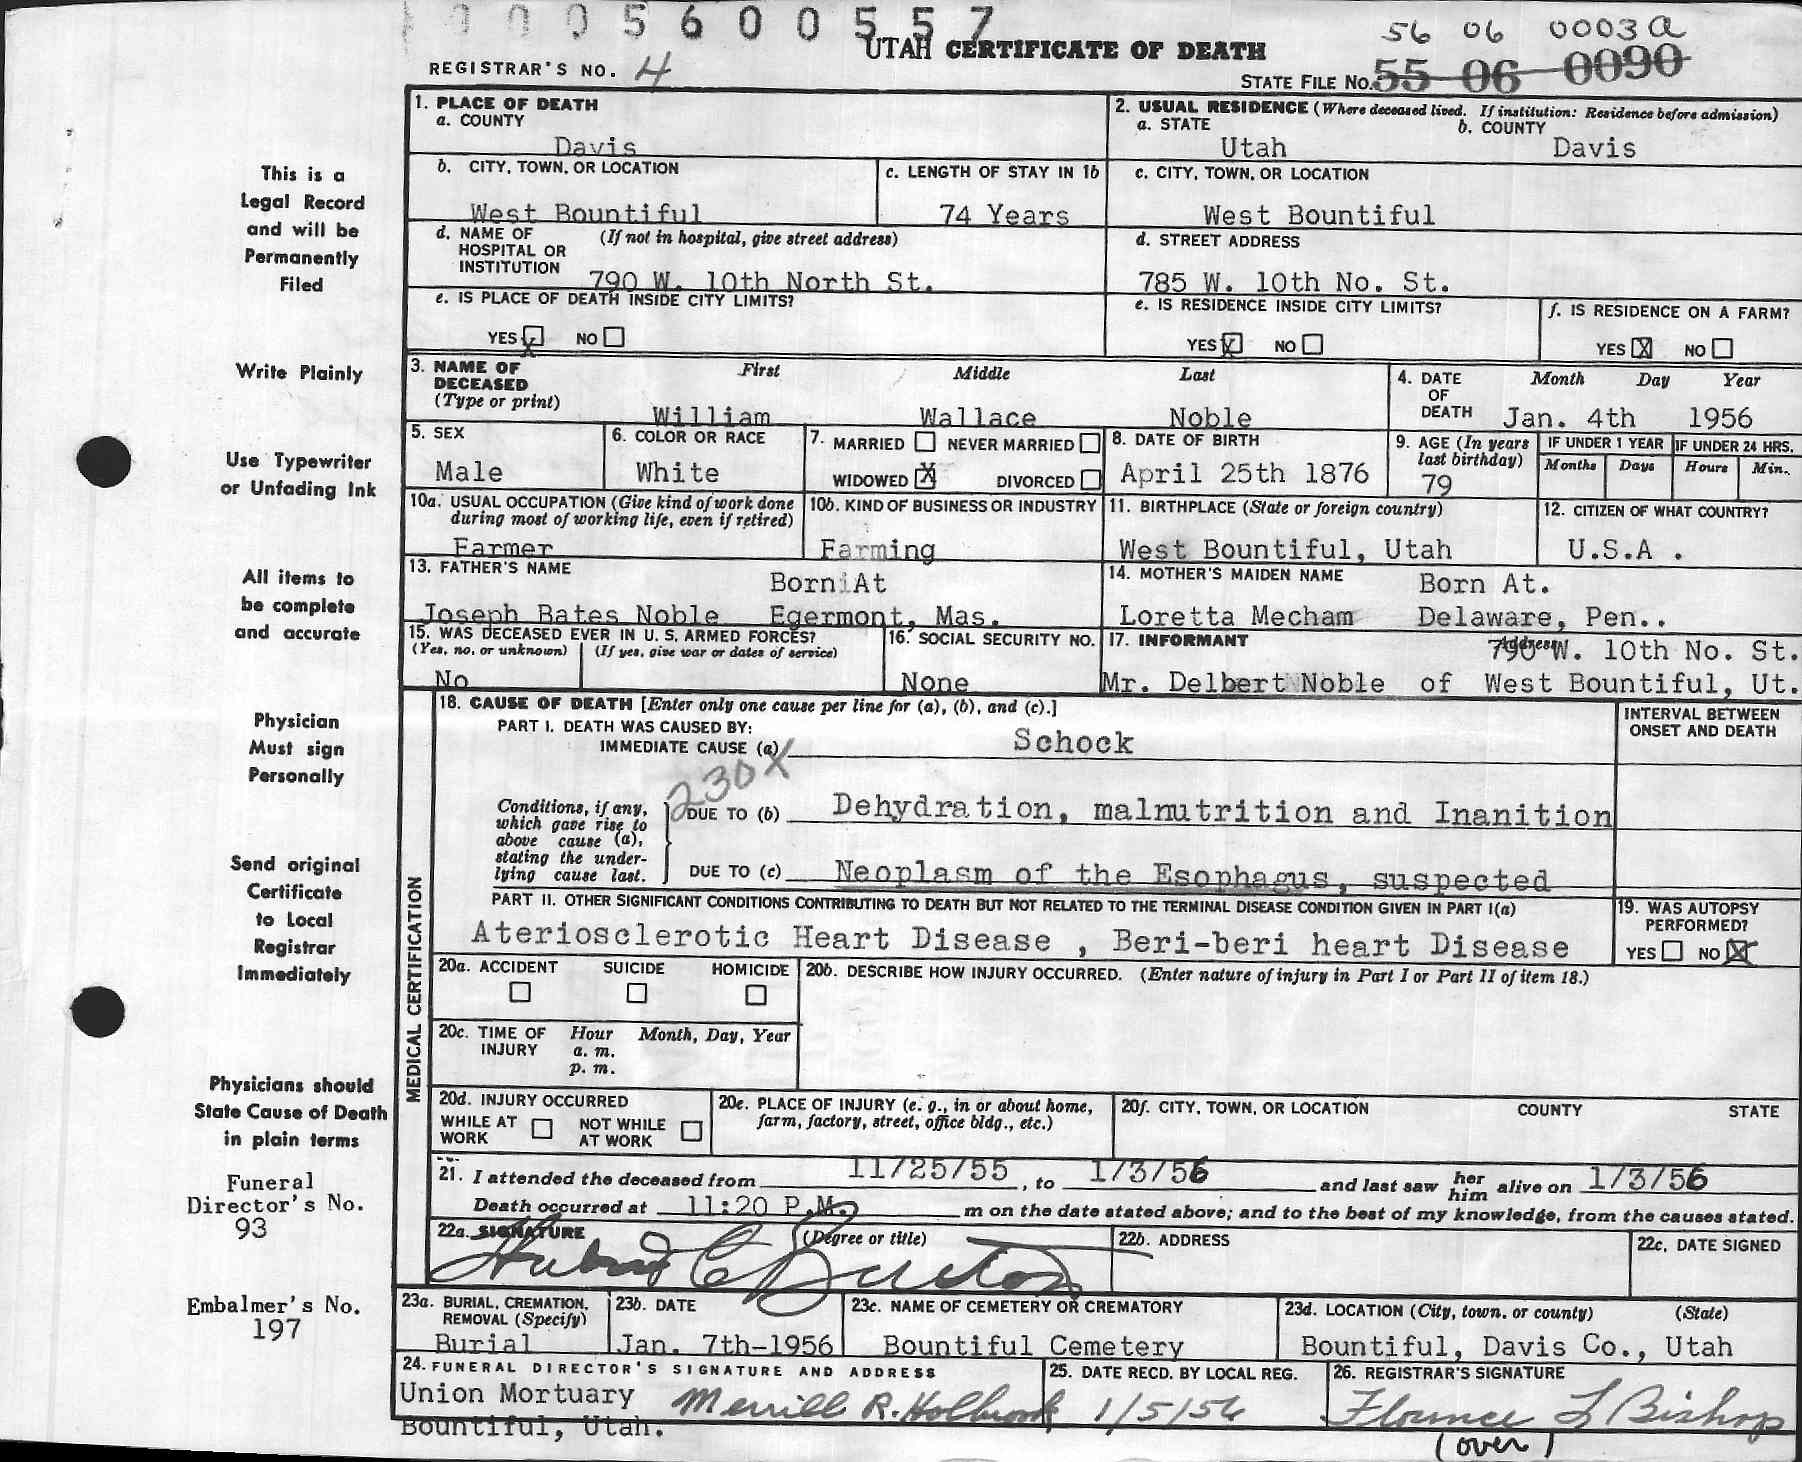 0005600557
56 06 0003a
UTAH CERTIFICATE OF DEATH
REGISTRAR'S NO. 4
STATE FILE NO. 55 06 0090
1. PLACE OF DEATH
a. COUNTY
Davis
2. USUAL RESIDENCE (Where deceased lived. If institution: Residence before admission)
a. STATE b. COUNTY
Utah Davis
b. CITY, TOWN, OR LOCATION
West Bountiful
c. LENGTH OF STAY IN 1b
74 Years
c. CITY, TOWN, OR LOCATION
West Bountiful
d. NAME OF HOSPITAL OR INSTITUTION (If not in hospital, give street address)
790 W. 10th North St.
d. STREET ADDRESS
785 W. 10th No. St.
e. IS PLACE OF DEATH INSIDE CITY LIMITS?
YES X NO
e. IS RESIDENCE INSIDE CITY LIMITS?
YES X NO
f. IS RESIDENCE ON A FARM?
YES X NO
3. NAME OF DECEASED (Type or print)
First Middle Last
William Wallace Noble
4. DATE OF DEATH Month Day Year
Jan. 4th 1956
5. SEX
Male
6. COLOR OR RACE
White
7. MARRIED NEVER MARRIED
WIDOWED X DIVORCED
8. DATE OF BIRTH
April 25th 1876
9. AGE (In years last birthday)
79
IF UNDER 1 YEAR
Months Days
IF UNDER 24 HRS.
Hours Min.
10a. USUAL OCCUPATION (Give kind of work done during most of working life, even if retired)
Farmer
10b. KIND OF BUSINESS OR INDUSTRY
Farming
11. BIRTHPLACE (State or foreign country)
West Bountiful, Utah
12. CITIZEN OF WHAT COUNTRY?
U.S.A .
13. FATHER'S NAME
Born At
Joseph Bates Noble Egermont, Mas.
14. MOTHER'S MAIDEN NAME
Born At.
Loretta Mecham Delaware, Pen..
15. WAS DECEASED EVER IN U. S. ARMED FORCES?
(Yes, no, or unknown) (If yes, give war or dates of service)
No
16. SOCIAL SECURITY NO.
None
17. INFORMANT Address
790 W. 10th No. St.
Mr. Delbert Noble of West Bountiful, Ut.
MEDICAL CERTIFICATION
18. CAUSE OF DEATH [Enter only one cause per line for (a), (b), and (c).]
PART I. DEATH WAS CAUSED BY:
IMMEDIATE CAUSE (a) Schock
INTERVAL BETWEEN ONSET AND DEATH
230X
Conditions, if any, which gave rise to above cause (a), stating the underlying cause last.
DUE TO (b) Dehydration, malnutrition and Inanition
DUE TO (c) Neoplasm of the Esophagus, suspected
PART II. OTHER SIGNIFICANT CONDITIONS CONTRIBUTING TO DEATH BUT NOT RELATED TO THE TERMINAL DISEASE CONDITION GIVEN IN PART I(a)
Ateriosclerotic Heart Disease , Beri-beri heart Disease
19. WAS AUTOPSY PERFORMED?
YES NO X
20a. ACCIDENT SUICIDE HOMICIDE
20b. DESCRIBE HOW INJURY OCCURRED. (Enter nature of injury in Part I or Part II of item 18.)
20c. TIME OF INJURY Hour Month, Day, Year
a. m.
p. m.
20d. INJURY OCCURRED
WHILE AT WORK NOT WHILE AT WORK
20e. PLACE OF INJURY (e. g., in or about home, farm, factory, street, office bldg., etc.)
20f. CITY, TOWN, OR LOCATION COUNTY STATE
21. I attended the deceased from 11/25/55, to 1/3/56 and last saw her him alive on 1/3/56
Death occurred at 11:20 P.M. m on the date stated above; and to the best of my knowledge, from the causes stated.
22a. SIGNATURE (Degree or title)
Burton
22b. ADDRESS
22c. DATE SIGNED
23a. BURIAL, CREMATION, REMOVAL (Specify)
Burial
23b. DATE
Jan. 7th-1956
23c. NAME OF CEMETERY OR CREMATORY
Bountiful Cemetery
23d. LOCATION (City, town, or county) (State)
Bountiful, Davis Co., Utah
24. FUNERAL DIRECTOR'S SIGNATURE AND ADDRESS
Union Mortuary Merrill R. Holbrook
Bountiful, Utah.
25. DATE RECD. BY LOCAL REG.
1/5/56
26. REGISTRAR'S SIGNATURE
Florence L Bishop
(over)
This is a
Legal Record
and will be
Permanently
Filed
Write Plainly
Use Typewriter
or Unfading Ink
All items to
be complete
and accurate
Physician
Must sign
Personally
Send original
Certificate
to Local
Registrar
Immediately
Physicians should
State Cause of Death
in plain terms
Funeral
Director's No.
93
Embalmer's No.
197